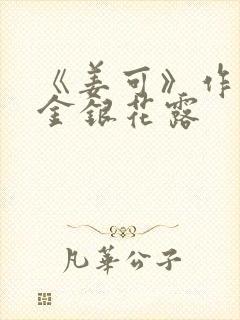 《姜可》作
金银花露
凡華公子